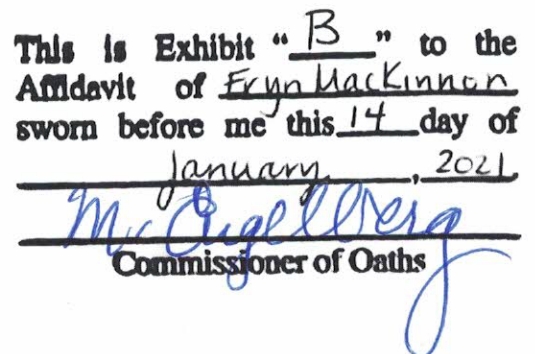 This is Exhibit “ B ” to the
Affidavit of Eryn MacKinnon
sworn before me this 14 day of
January, 2021
Commissioner of Oaths